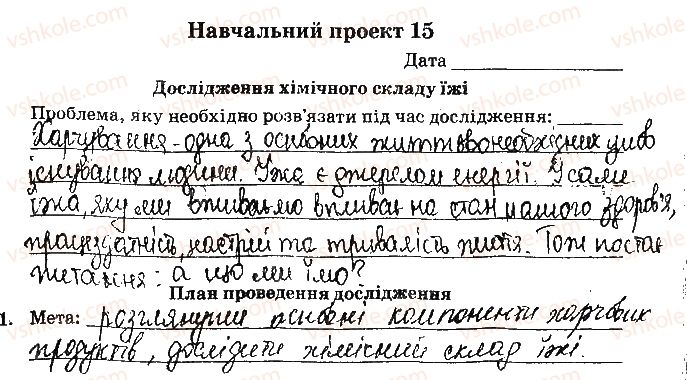 Навчальний проект 15
Дата
Дослідження хімічного складу їжі
Проблема, яку необхідно розв'язати під час дослідження:
Харчування - одна з основних життєвонеобхідних умов
існування людини. Їжа є джерелом енергії. Усами
їжа, яку ми вживаємо впливає на стан нашого здоров'я,
працездатність, настрій та тривалість життя. Тож постає
питання: а що ми їмо?
План проведення дослідження
1. Мета: розглянути основні компоненти харчових
продуктів, дослідити хімічний склад їжі.